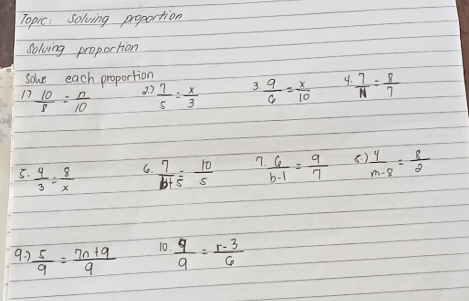 Topic: Solving proportion
Solving proportion
Solve each proportion
1) 10/8 = n/10  2) 7/5 = x/3  3. 9/6 = x/10  4. 7/N = 8/7
5. 4/3 = 8/x  6. 7/b+5 = 10/5  7. 6/b-1 = 9/7  8.) 4/m-8 = 8/2
9.) 5/9 = 7n+9/9  10. 9/9 = r-3/6